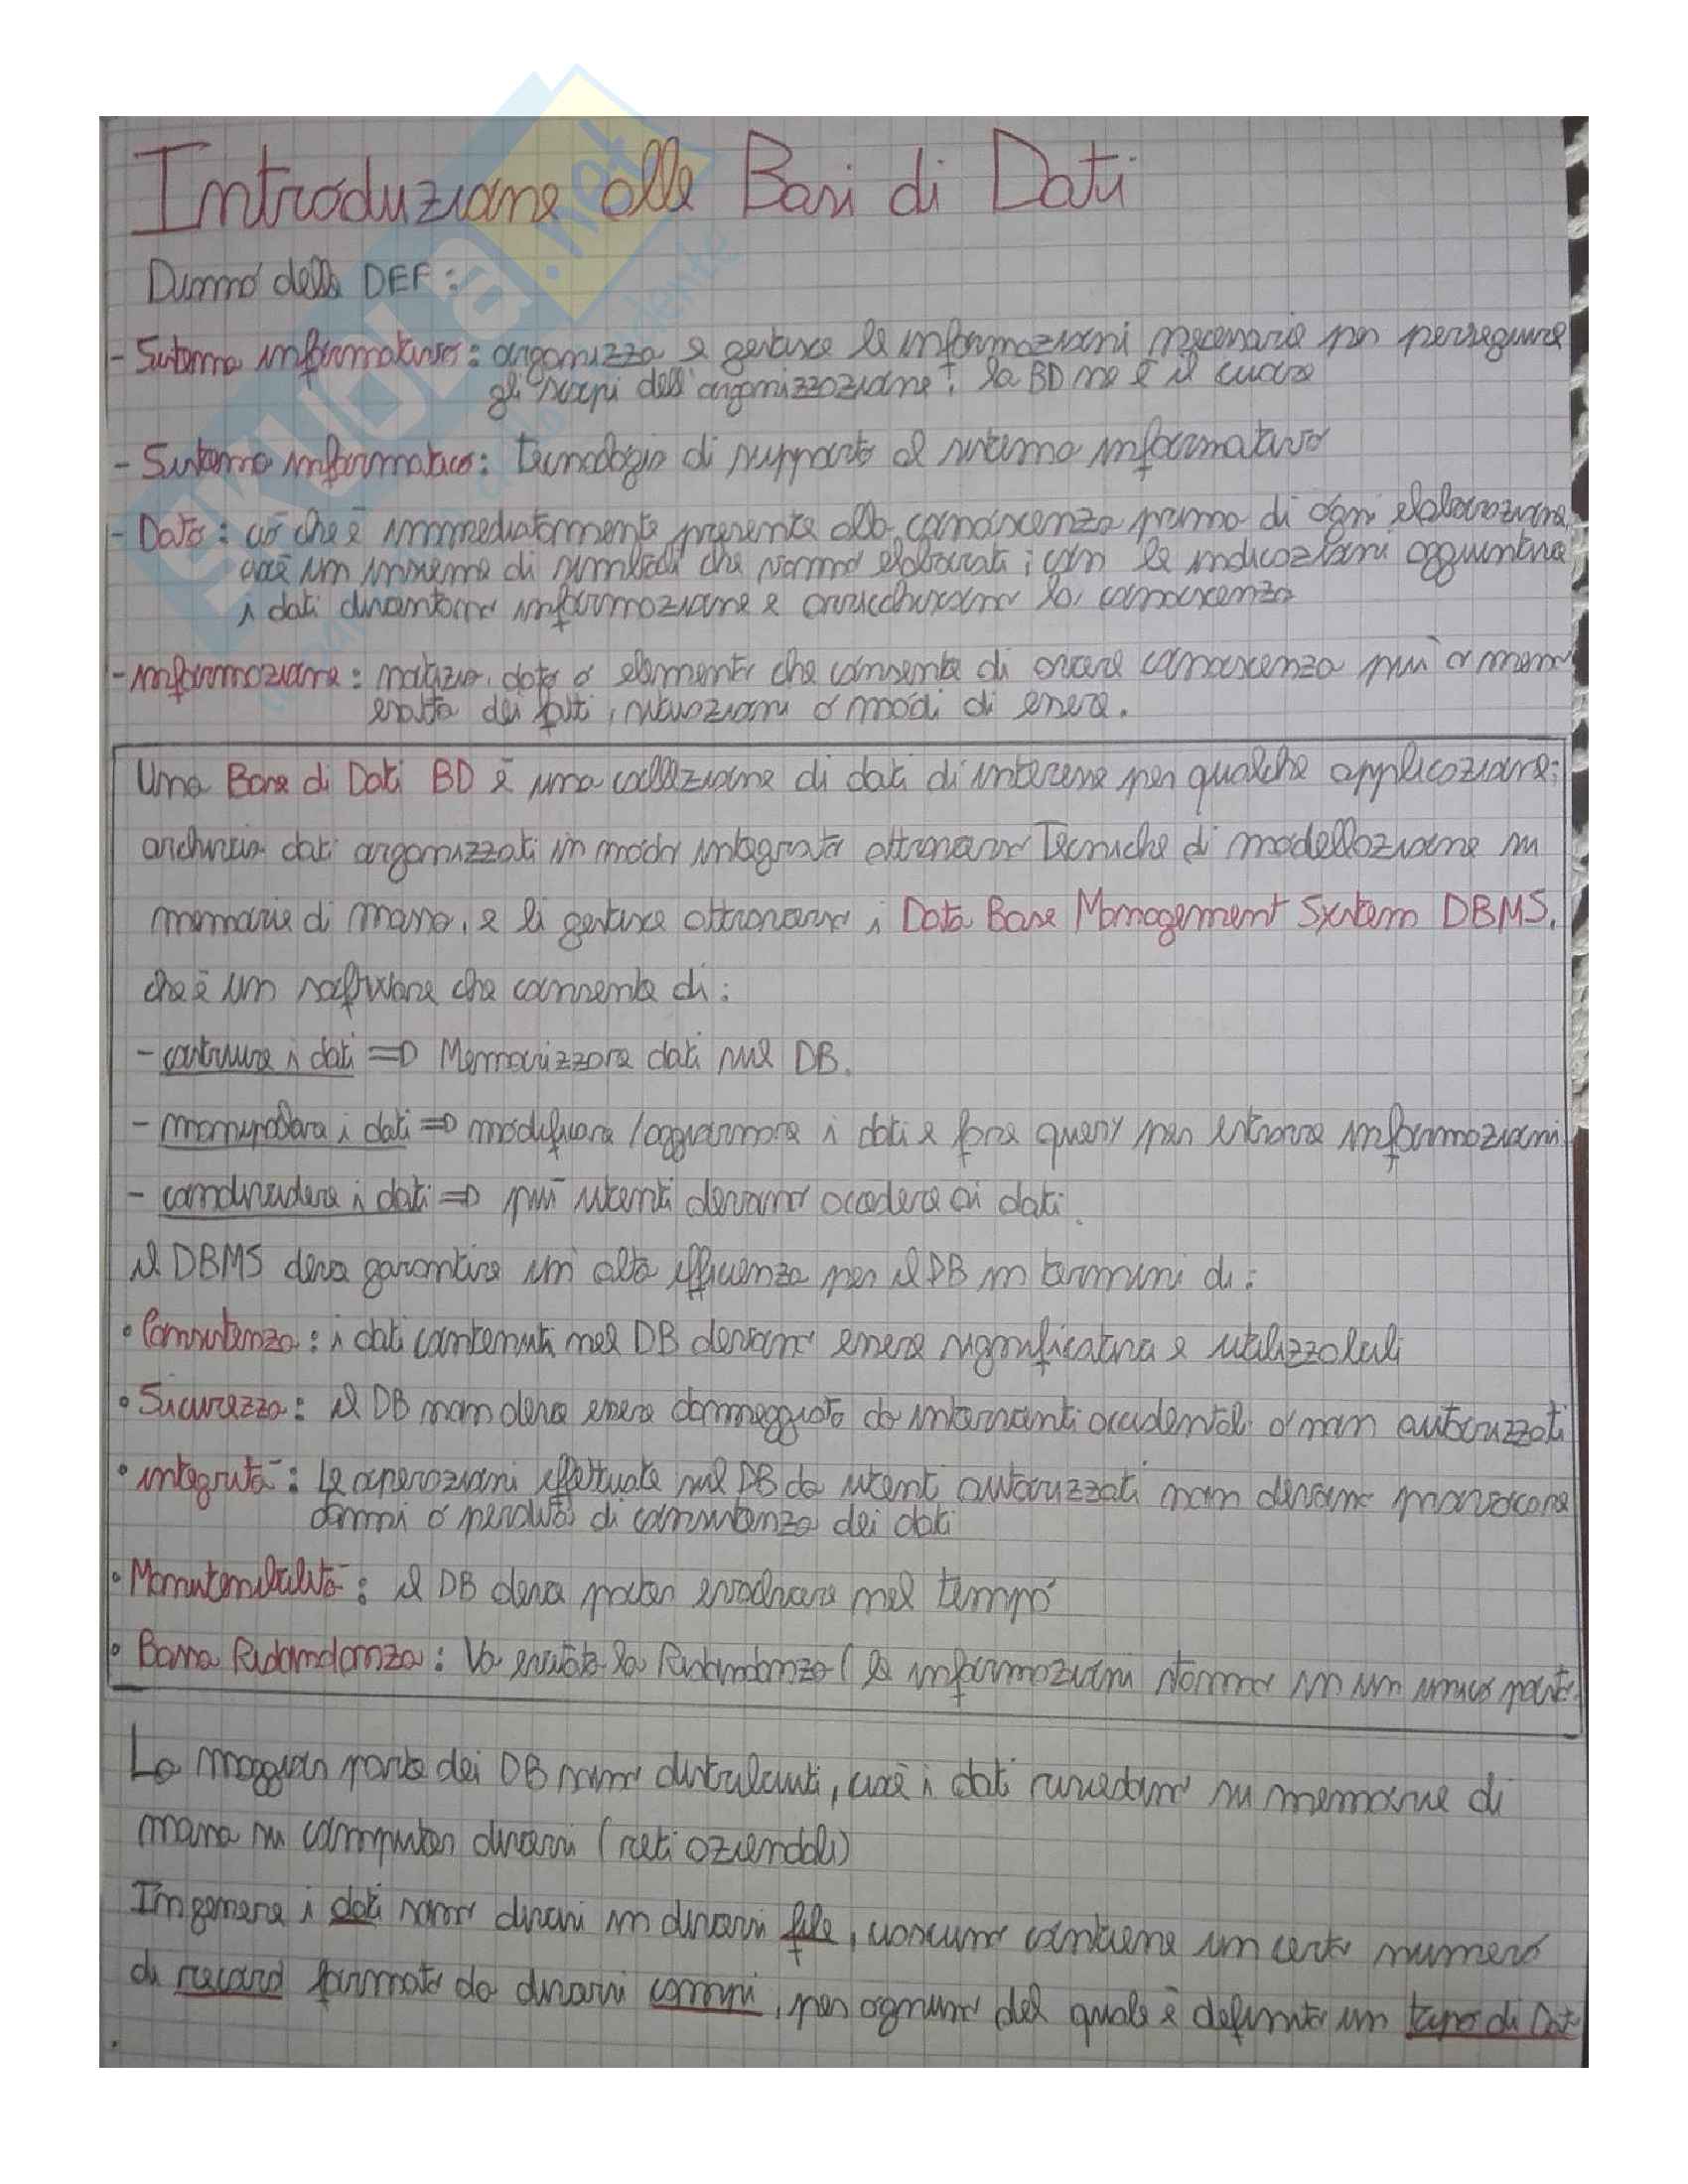 Introduzione alle Basi di Dati
Diamo delle DEF:
- Sistema informativo: organizza e gestisce le informazioni necessarie per perseguire
gli scopi dell'organizzazione; la BD ne è il cuore
- Sistema informatico: Tecnologia di supporto al sistema informativo
- Dato: ciò che è immediatamente presente alla conoscenza prima di ogni elaborazione,
cioè un insieme di simboli che vanno elaborati; con le indicazioni aggiuntive
i dati diventano informazione e arricchiscono la conoscenza
- informazione: notizia, dato o elemento che consente di avere conoscenza più o meno
esatta dei fatti, situazioni o modi di essere.
Una Base di Dati BD è una collezione di dati di interesse per qualche applicazione;
archivia dati organizzati in modo integrato attraverso Tecniche di modellazione su
memorie di massa, e li gestisce attraverso i Data Base Management System DBMS,
che è un software che consente di:
- costruire i dati => Memorizzare dati sul DB.
- manipolare i dati => modificare/aggiornare i dati e fare query per estrarre informazioni
- condividere i dati => più utenti devono accedere ai dati.
il DBMS deve garantire un'alta efficienza per il DB in termini di:
• Consistenza: i dati contenuti nel DB devono essere significativi e utilizzabili
• Sicurezza: il DB non deve essere danneggiato da interventi accidentali o non autorizzati
• integrità: Le operazioni effettuate sul DB da utenti autorizzati non devono provocare
danni o perdita di consistenza dei dati
• Manutenibilità: il DB deve poter evolvere nel tempo
• Bassa Ridondanza: Va evitata la Ridondanza (le informazioni stanno in un unico posto
La maggior parte dei DB sono distribuiti, cioè i dati risiedono su memorie di
massa su computer diversi (reti aziendali)
In genere i dati sono divisi in diversi file, ciascuno contiene un certo numero
di record formato da diversi campi, per ognuno del quale è definito un tipo di Dat
ekuola.net